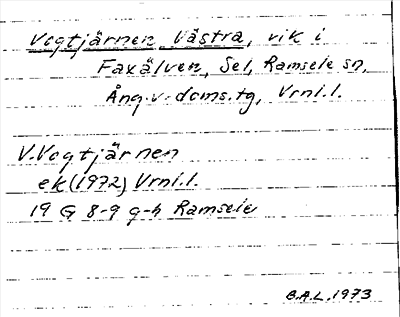 Vogtjärnen Västra, vik i
Faxälven, Sel, Ramsele sn,
Ång.v. doms.tg, Vrnl.l.
V. Vogtjärnen
ek (1972) Vrnl.l.
19 G 8-9 g-h Ramsele
B.A.L. 1973